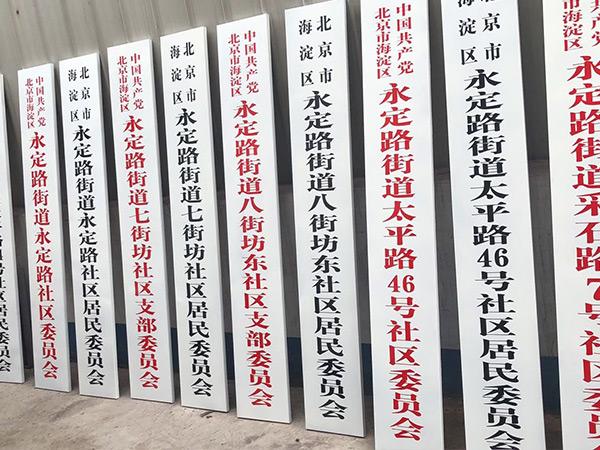 社区居民委员会
中国共产党
北京市海淀区
永定路街道永定路社区委员会
北京市
海淀区
永定路街道永定路社区居民委员会
中国共产党
北京市海淀区
永定路街道七街坊社区支部委员会
北京市
海淀区
永定路街道七街坊社区居民委员会
中国共产党
北京市海淀区
永定路街道八街坊东社区支部委员会
北京市
海淀区
永定路街道八街坊东社区居民委员会
中国共产党
北京市海淀区
永定路街道太平路46号社区委员会
北京市
海淀区
永定路街道太平路46号社区居民委员会
北京市海淀区
永定路街道采石路7号社区